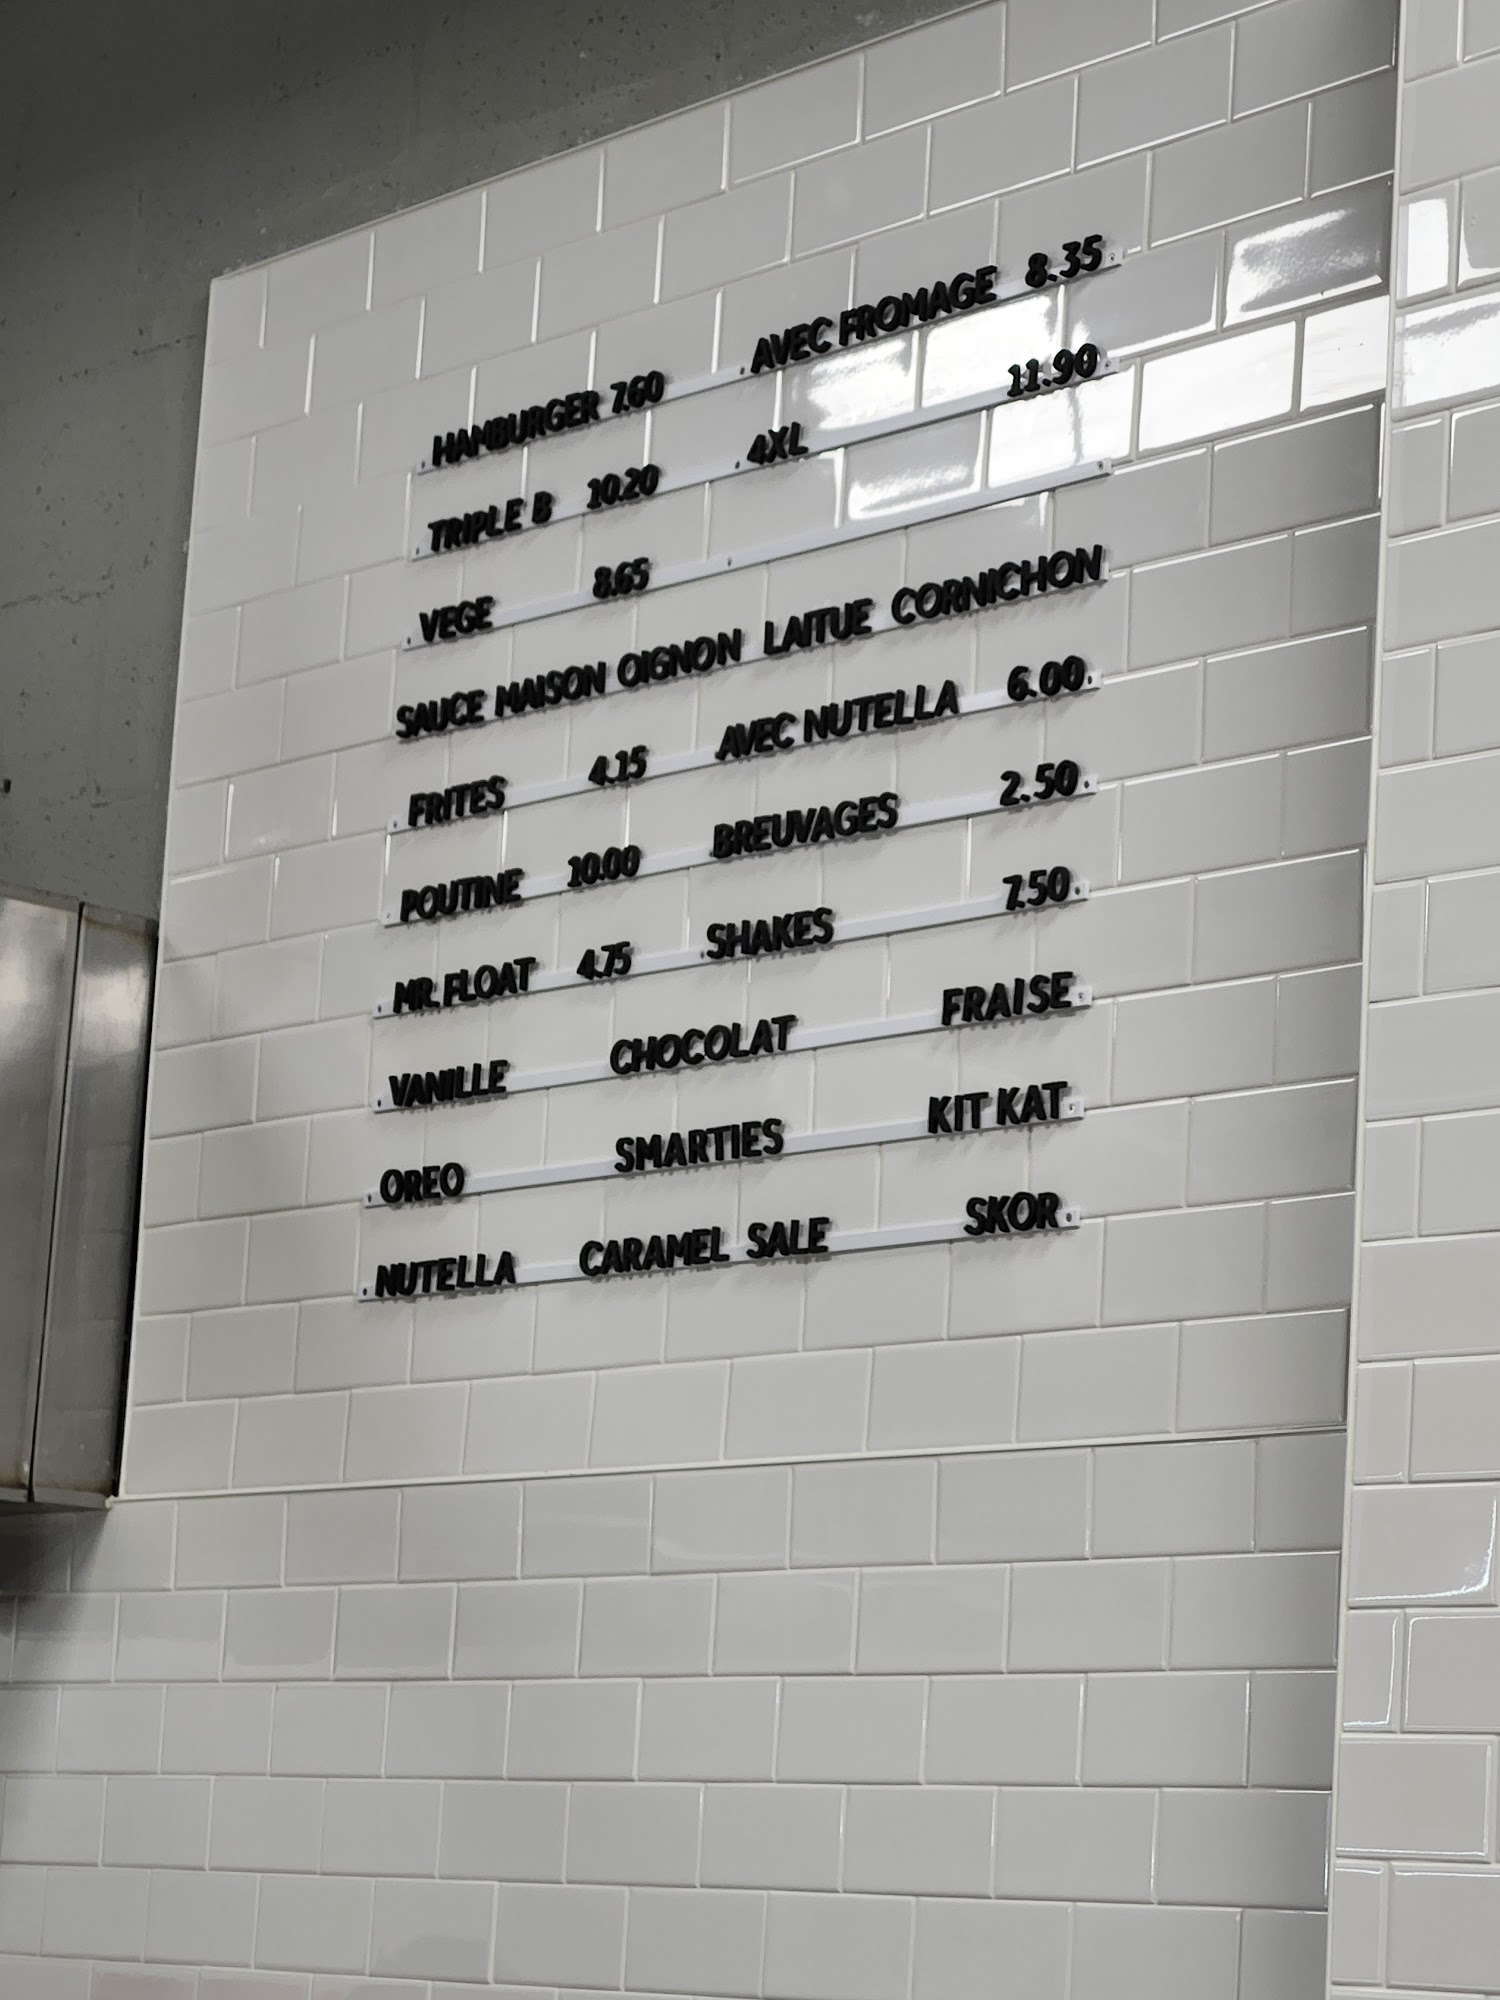 HAMBURGER 7.60 AVEC FROMAGE 8.35
TRIPLE B 10.20 4XL 11.90
VEGE 8.65
SAUCE MAISON OIGNON LAITUE CORNICHON
FRITES 4.15 AVEC NUTELLA 6.00
POUTINE 10.00 BREUVAGES 2.50
MR. FLOAT 4.75 SHAKES 7.50
VANILLE CHOCOLAT FRAISE
OREO SMARTIES KIT KAT
NUTELLA CARAMEL SALE SKOR